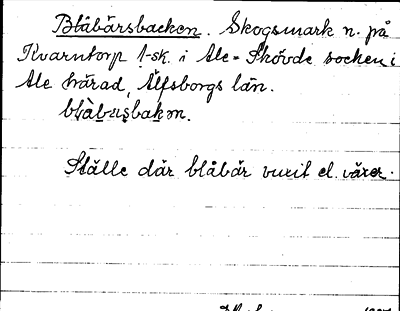 Blåbärsbacken. Skogsmark n. på
Kvarntorp 1 sk. i Ale-Skövde socken i
Ale härad, Älfsborgs län.
Ställe där blåbär vuxit el. växer.